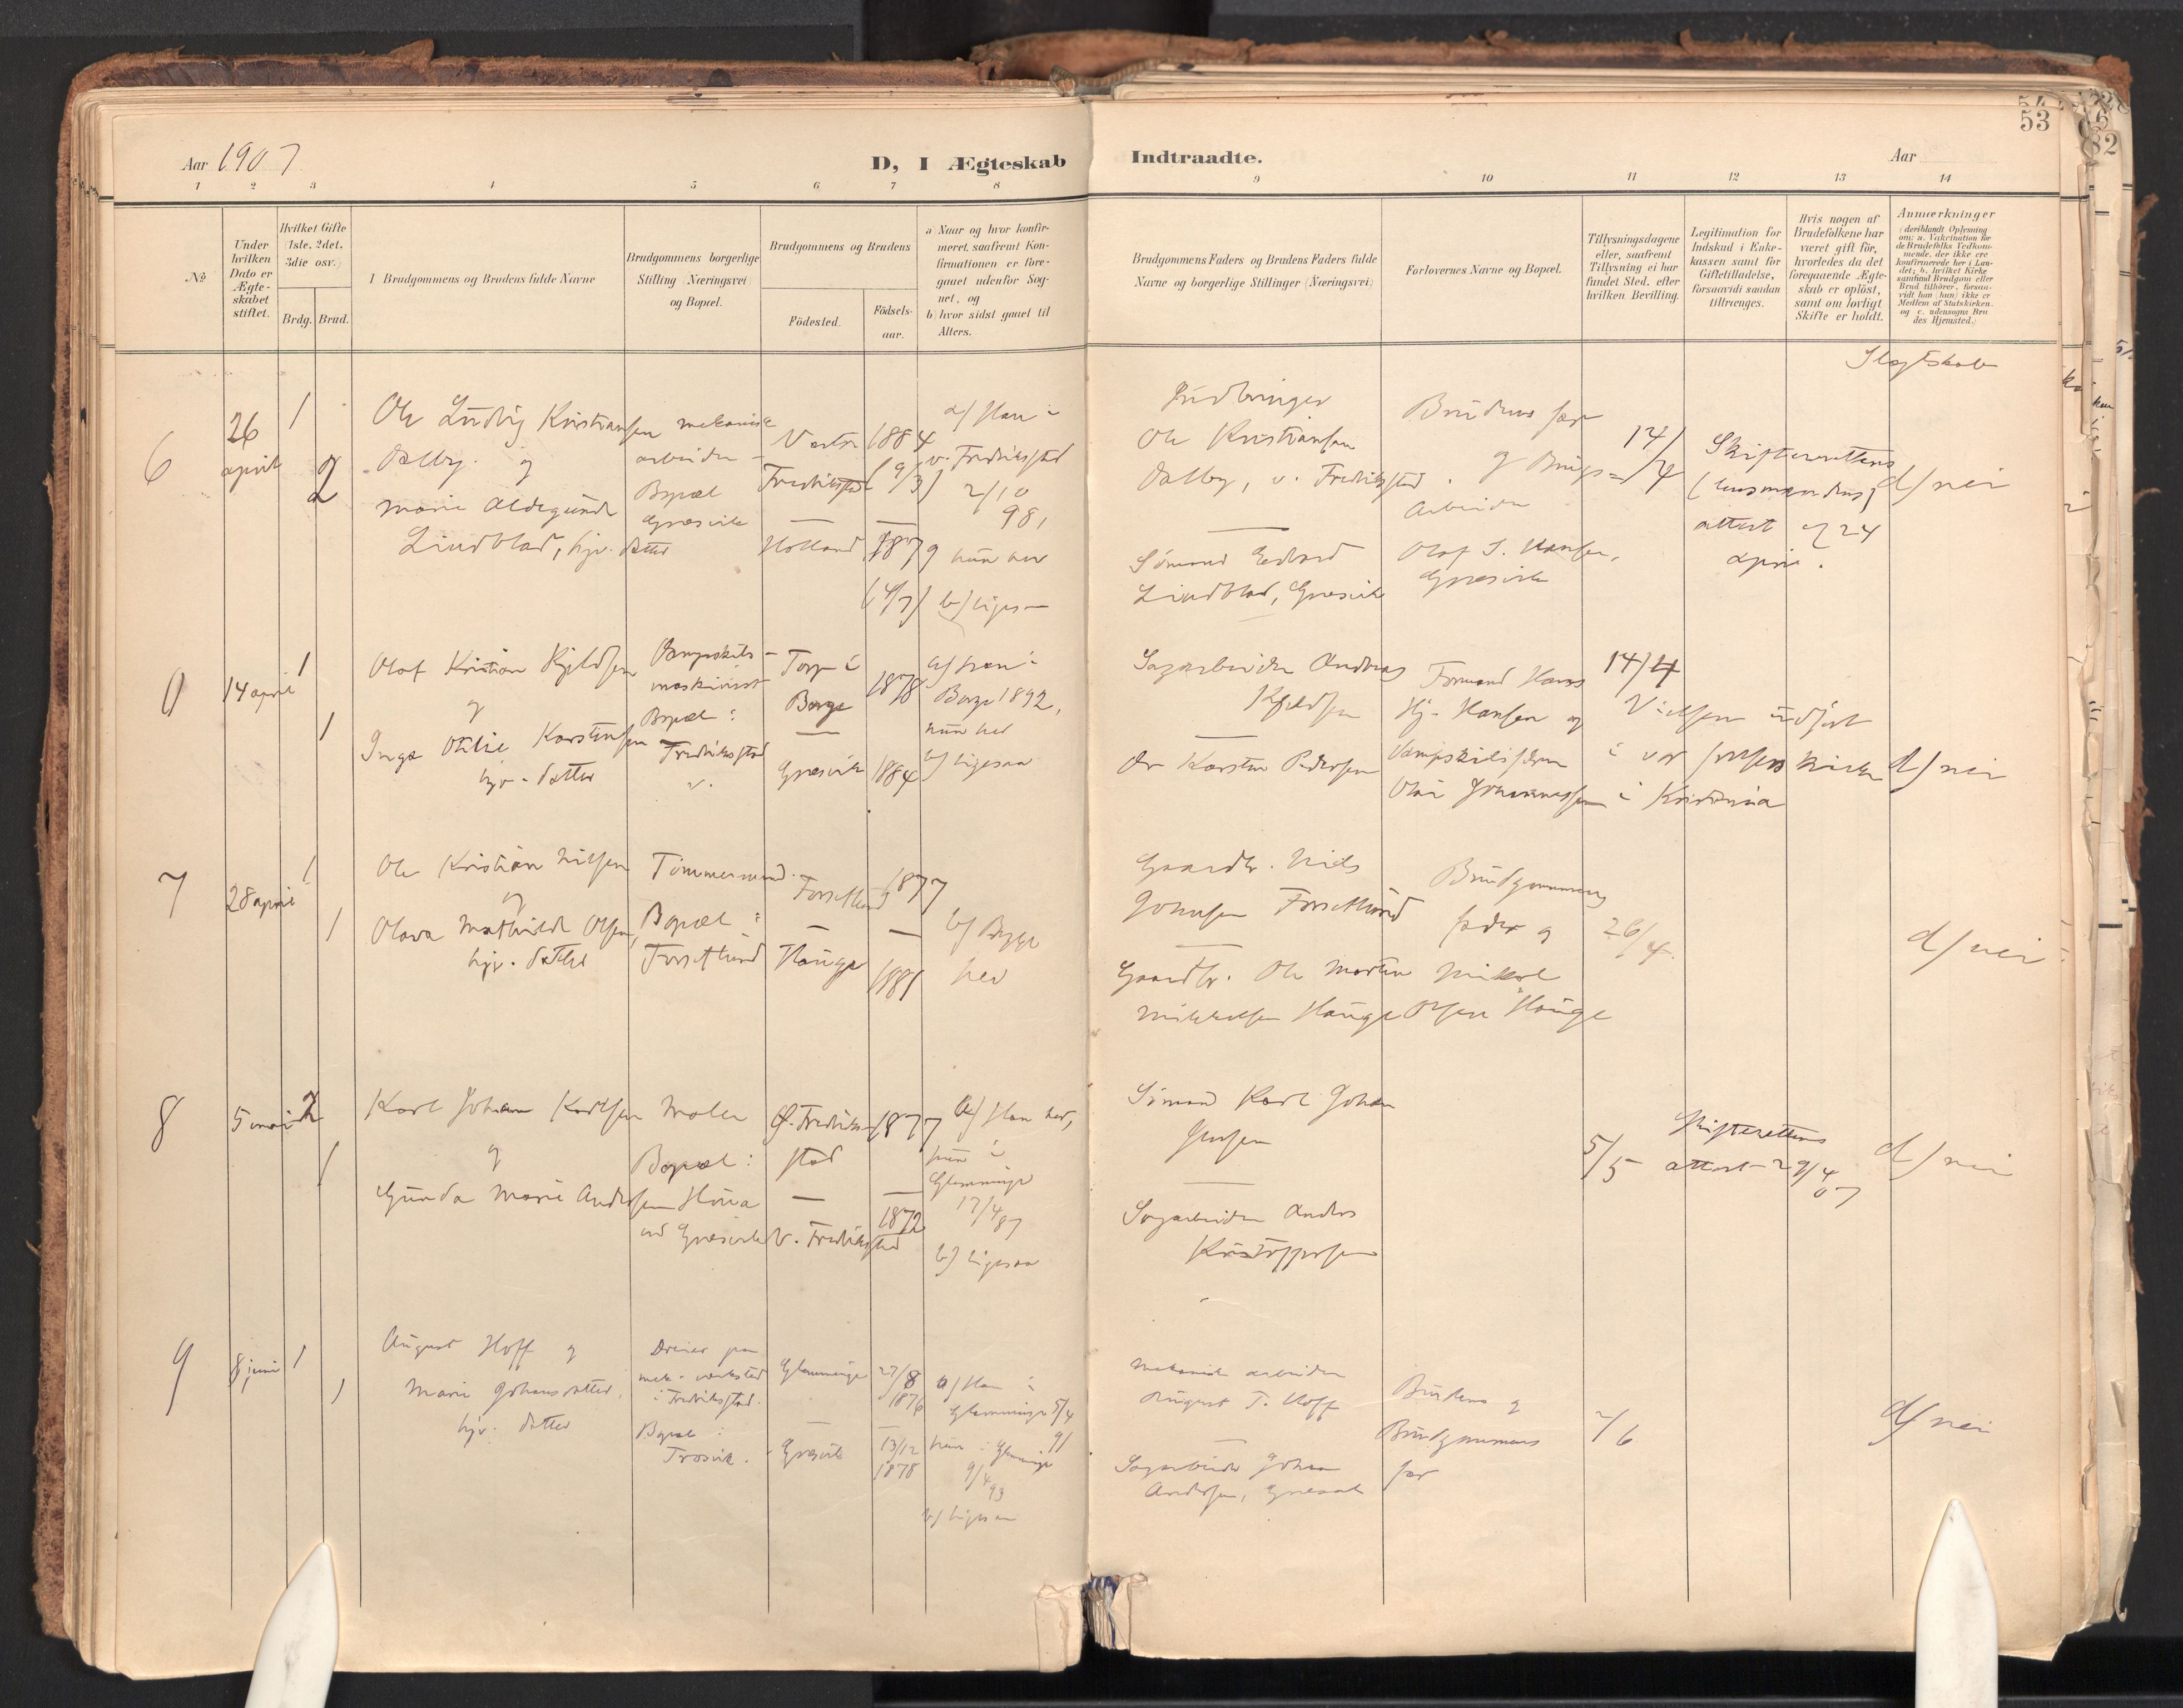 54
53
82
Aar 1907
D, I Ægteskab
Indtraadte.
Aar
1 2 3 4 5 6 7 8 9 10 11 12 13 14
No
Under hvilken Dato er Ægte-skabet stiftet.
Hvilket Gifte (1ste, 2det, 3die osv.)
Brdg. Brud.
I Brudgommens og Brudens fulde Navne
Brudgommens borgerlige Stilling (Næringsvei) og Bopæl.
Brudgommens og Brudens
Födested.
Födsels-aar.
a) Naar og hvor konfir-meret, saafremt Kon-firmationen er fore-gaaet udenfor Sog-net, og
b) hvor sidst gaaet til Alters.
Brudgommens Faders og Brudens Faders fulde Navne og borgerlige Stillinger (Næringsvei)
Forlovernes Navne og Bopæl.
Tillysningsdagene eller, saafremt Tillysning ei har fundet Sted, efter hvilken Bevilling.
Legitimation for Indskud i Enke-kassen samt for Giftetilladelse, forsaavidt saadan tiltrænges.
Hvis nogen af Brudefolkene har været gift för, hvorledes da det foregaaende Ægte-skab er oplöst, samt om lovligt Skifte er holdt.
Anmærkninger
(deriblandt Oplysning om: a. Vakcination for de Brudefolks Vedkom-mende, der ikke ere konfirmerede her i Lan-det; b. hvilket Kirke samfund Brudgom eller Brud tilhörer, forsaa-vidt han (hun) ikke er Medlem af Statskirken. og c. udensogns Bru des Hjemsted.)
Slegtskab
6
26 april
1
2
Ole Ludvig Kristiansen
Dalby. og
Marie Aldegunde
Lindblad, hjv. datter
mekanisk
arbeider
Bopæl
Græsvik
Fredrikstad
Holland
1884
(9/3)
1879
(4/7)
a) Han i
v. Fredriksstad
2/10
98,
hun her
b) ligesaa
Ole Kristiansen
Dalby, v. Fredrikstad
Sömand Edvard
Lindblad, Græsvik
Brudens far
og Brugs-
Arbeider
Olaf S. Hansen,
Græsvik
14/4
Skifterettens
attest af 24
april.
d) nei
0
14 april
1
1
Olaf Kristian Kjeldsen
og
Inga Otilie Karstensen
hjv. datter
Dampskibs-
maskinist
Bopæl:
Fredriksstad
v.
Torp i
Borge
Græsvik
1878
1884
a) han i
Borge 1892,
hun her
b) ligesaa
Sagarbeider Andreas
Kjeldsen
Karsten Pedersen
Formand Hans
Hj. Hansen og
Johannessen
14/4
Vielsen udfört
i vor frelsers kirke
i Kristiania
d) nei
7
28 april
1
1
Ole Kristian Nilsen
og
Olava Mathilde Olsen,
hjv. datter
Tömmermand.
Bopæl:
Forsetlund
Forsetlund
Hauge
1877
1881
b) Begge
her
Gaardbr. Niels
Johnsen Forsetlund
Gaardbr. Ole Martin
Mikkelsen Hauge
Brudgommens
fader og
Mikael
Olsen Hauge
26/4.
d) nei
8
5 mai
2
1
Karl Johan Karlsen
og
Gunda Marie Andersen
Maler
Bopæl:
ved Græsvik
Ø. Fredrik-
stad
V. Fredrikstad
1877
1872
a) Han her,
hun i
Glemminge
17/4
87
b) ligesaa
Sömand Karl Johan
Jensen
Sagarbeider Anders
Kristoffersen
5/5
Skifterettens
attest 29/4
07
d) nei
9
8 juni
1
1
August Hoff og
Marie Johansdatter,
hjv. datter
Dreier paa
mek. verksted
i Fredriksstad.
Bopæl:
Trosvik.
Glemminge
Græsvik
27/8
1876
13/12
1878
a) Han i
Glemminge 5/4
91
hun i Glemminge
9/4
93
b) ligesaa
Mekanisk arbeider
August T. Hoff
Sagarbeider Johan
Andersen, Græsvik
Brudens og
Brudgommens
far
2/6
d) nei